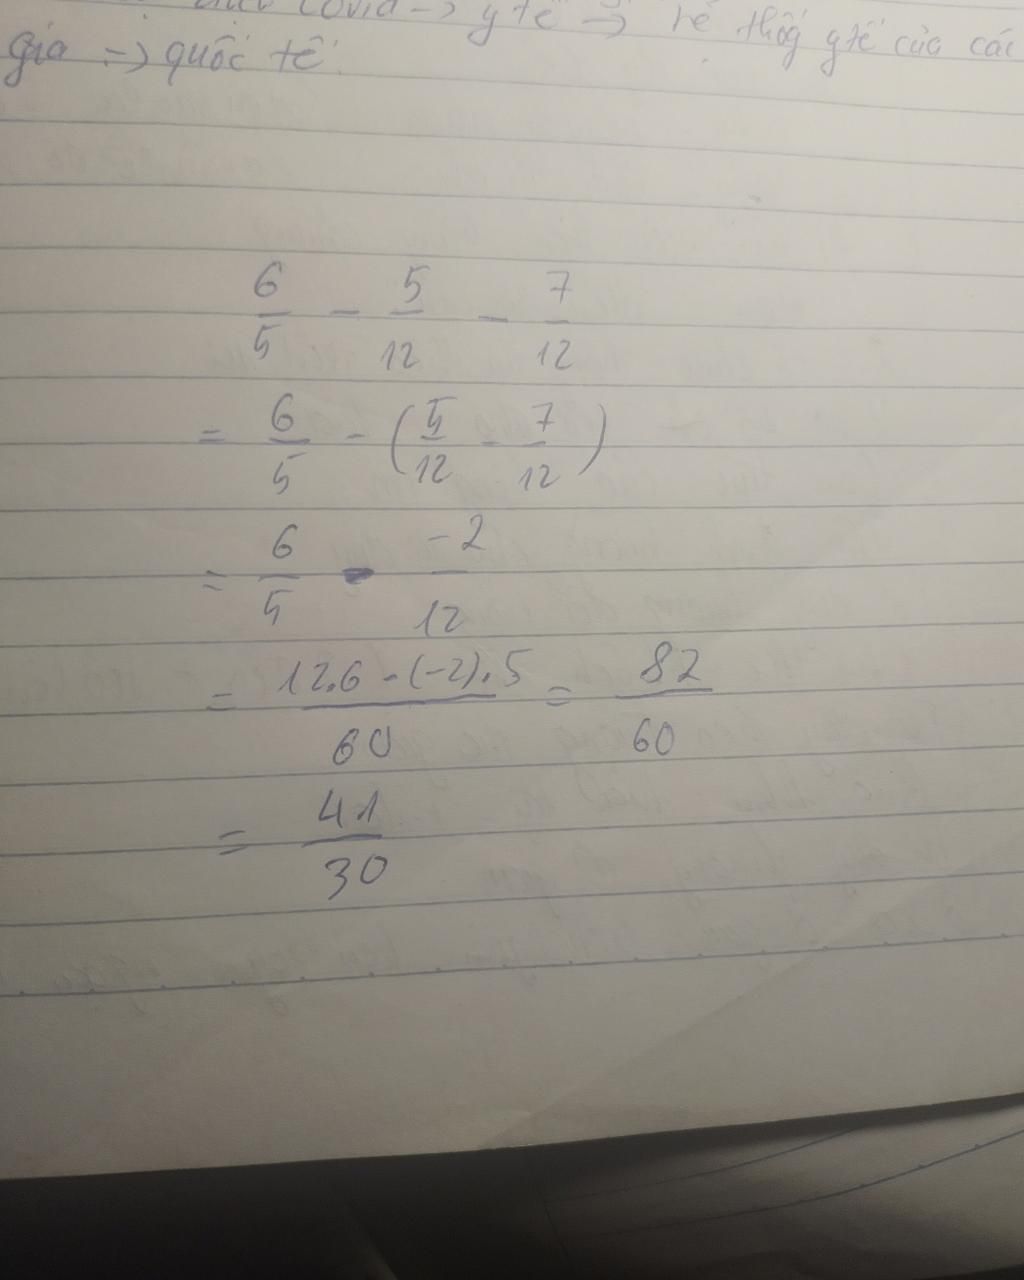 Covid -> y tế -> hệ thốg y tế của các
gia => quốc tế.
6/5 - 5/12 - 7/12
= 6/5 - (5/12 - 7/12)
= 6/5 - -2/12
= (12.6 - (-2).5)/60 = 82/60
= 41/30